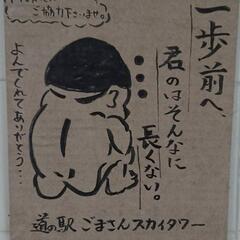 ご協力下さいませ。
一歩前へ、
君のはそんなに
長くない。
よんでくれてありがとう…
道の駅 ごまさんスカイタワー